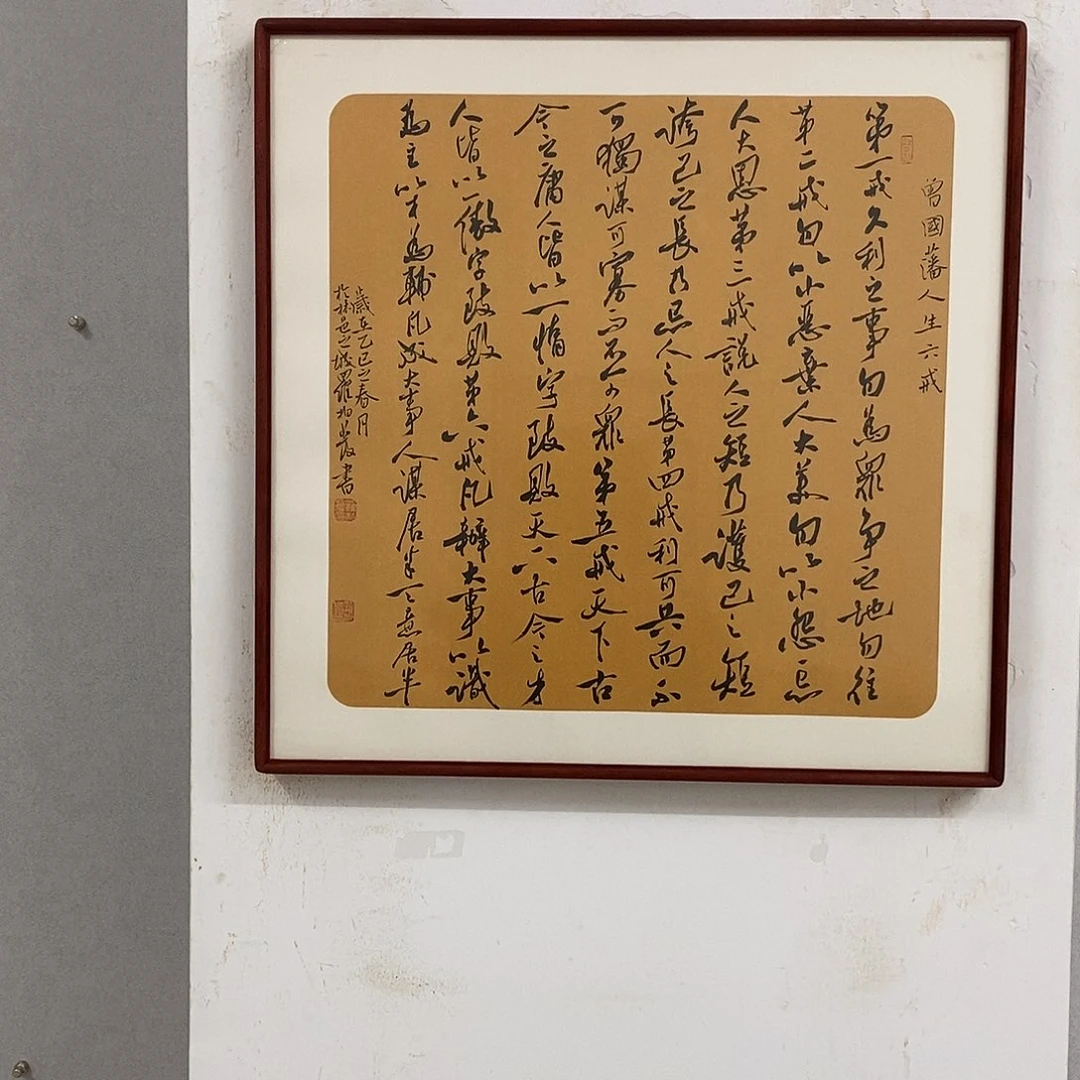 曾國藩人生六戒
第一戒久利之事勿為眾争之地勿往
第二戒勿以小惡棄人大美勿以小怨忘
人大恩第三戒說人之短乃護己之短
誇己之長乃忌人之長第四戒利可共而不
可獨謀可寡而不可眾第五戒天下古
今之庸人皆以一惰字致敗天下古今之才
人皆以一傲字致敗第六戒凡辦大事以識
為主以才為輔凡成大事人謀居半天意居半
歲在乙巳之春月
於林邑之城羅書